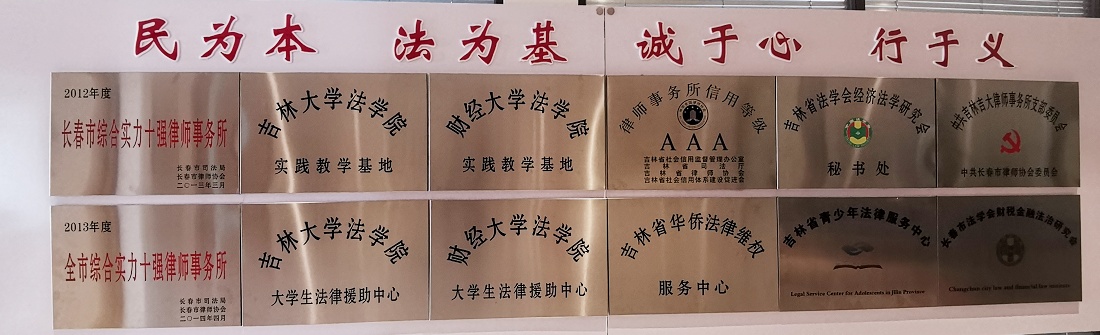 民为本 法为基 诚于心 行于义
2012年度
长春市综合实力十强律师事务所
长春市司法局
长春市律师协会
二〇一三年三月
吉林大学法学院
实践教学基地
财经大学法学院
实践教学基地
律师事务所信用等级
AAA
吉林省社会信用监督管理办公室
吉林省司法厅
吉林省律师协会
吉林省社会信用体系建设促进会
吉林省法学会经济法学研究会
秘书处
中共吉林吉大律师事务所支部委员会
中共长春市律师协会委员会
2013年度
全市综合实力十强律师事务所
长春市司法局
长春市律师协会
二〇一四年四月
吉林大学法学院
大学生法律援助中心
财经大学法学院
大学生法律援助中心
吉林省华侨法律维权
服务中心
吉林省青少年法律服务中心
Legal Service Center for Adolescents in Jilin Province
长春市法学会财税金融法研究会
Changchun city law and financial law